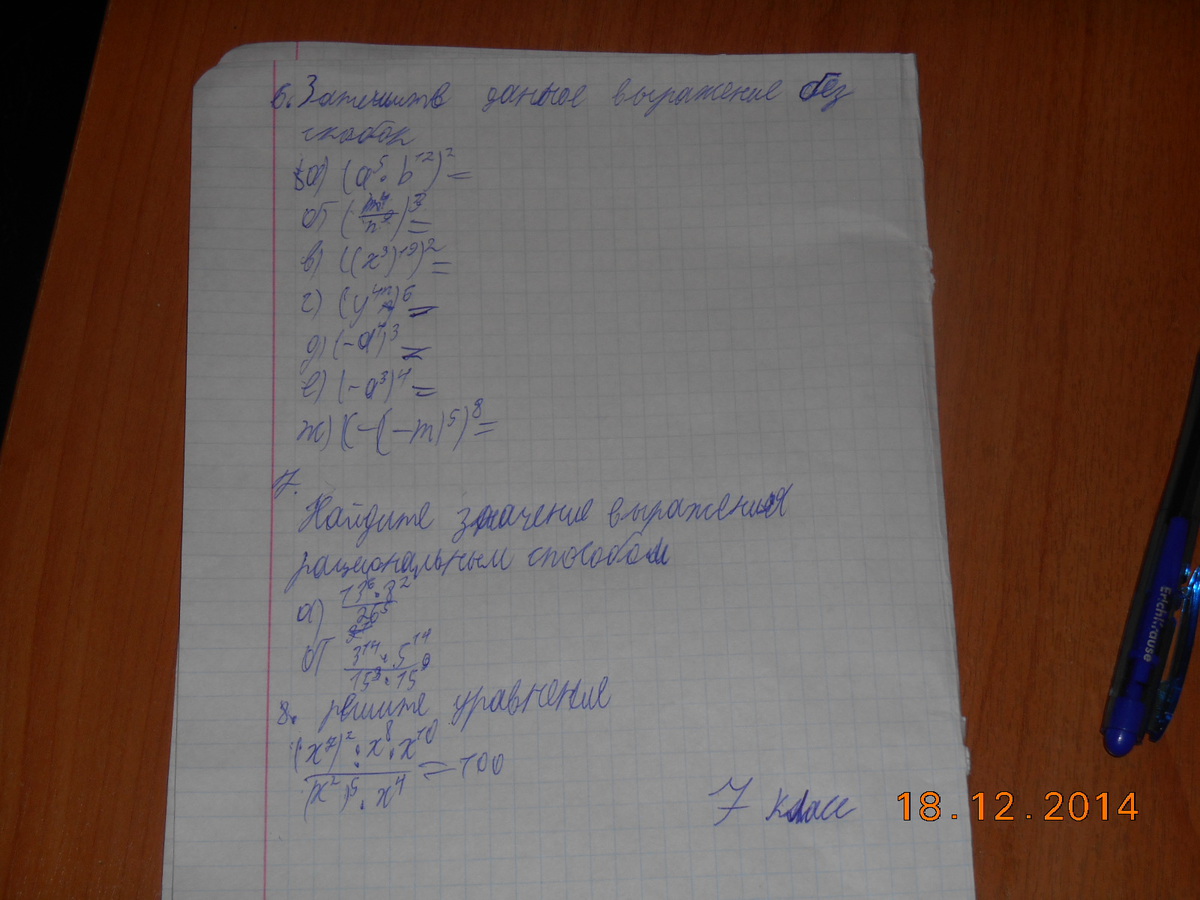 6. Запишите данное выражение без
скобок
а) (a⁵ · b¹²)² =
б) (m⁴/n⁹)³ =
в) ((x³)¹⁹)² =
г) (y⁴ⁿ)⁶ =
д) (-a⁷)³ =
е) (-a³)⁴ =
ж) (-(-m)⁵)⁸ =
7.
Найдите значение выражения
рациональным способом
а) 13⁶ · 8² / 26⁵
б) 3¹⁴ · 5¹⁴ / 15³ · 15⁹
8. решите уравнение
(x⁷)² : x⁸ · x¹⁰ / (x²)⁵ · x⁴ = 100
7 класс
18.12.2014
ErichKrause